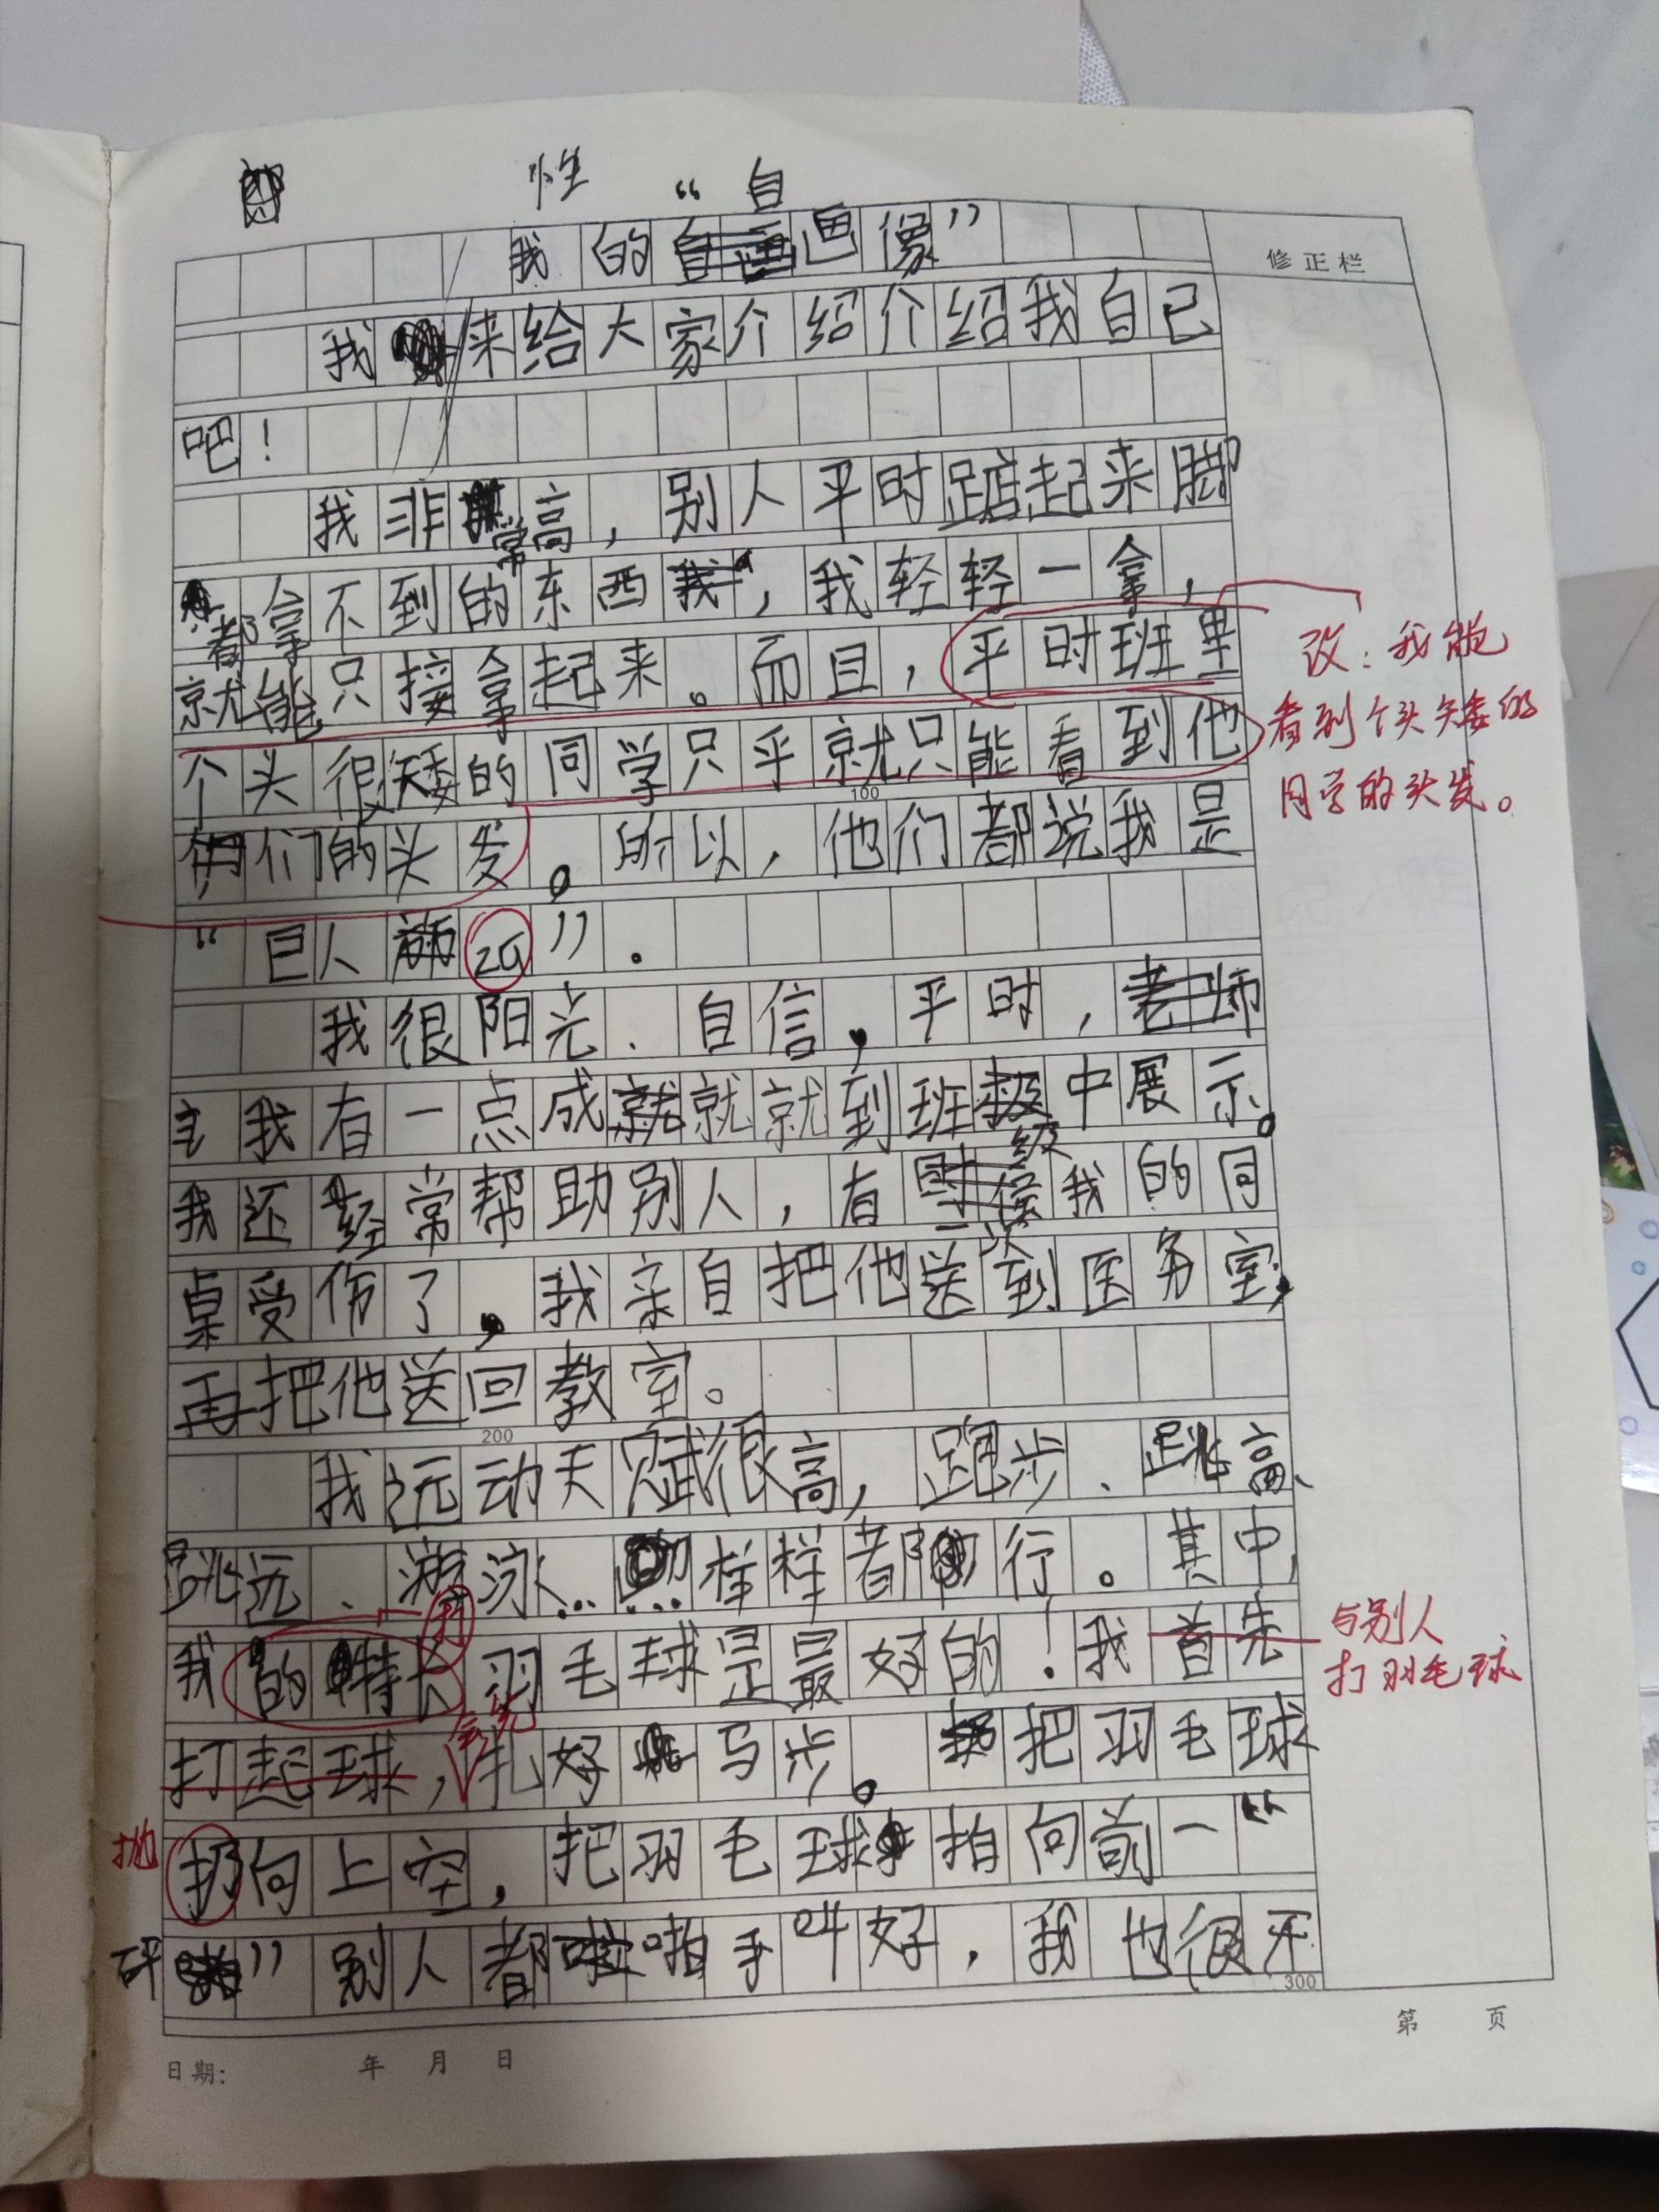 性 “ 自
我的画像”
修正栏
我来给大家介绍介绍我自己
吧！
我非常高，别人平时踮起来脚
都拿不到的东西，我轻轻一拿，
就能只接拿起来。而且，平时班里
改：我能
看到个头矮的
同学的头发。
个头很矮的同学只乎就只能看到他
100
们的头发。所以，他们都说我是
“巨人
”。
我很阳光、自信，平时，
我有一点成就就到班级中展示。
我还经常帮助别人，有一次我的同
桌受伤了，我亲自把他送到医务室，
再把他送回教室。
200
我远动天赋很高，跑步、跳高、
跳远、游泳……样样都行。其中，
我的特长羽毛球是最好的！我首先
打
与别人
打羽毛球
打起球，扎好马步。把羽毛球
会先
抛
扔向上空，把羽毛球拍向前一“
砰”别人都啪手叫好，我也很开
300
第 页
日期： 年 月 日